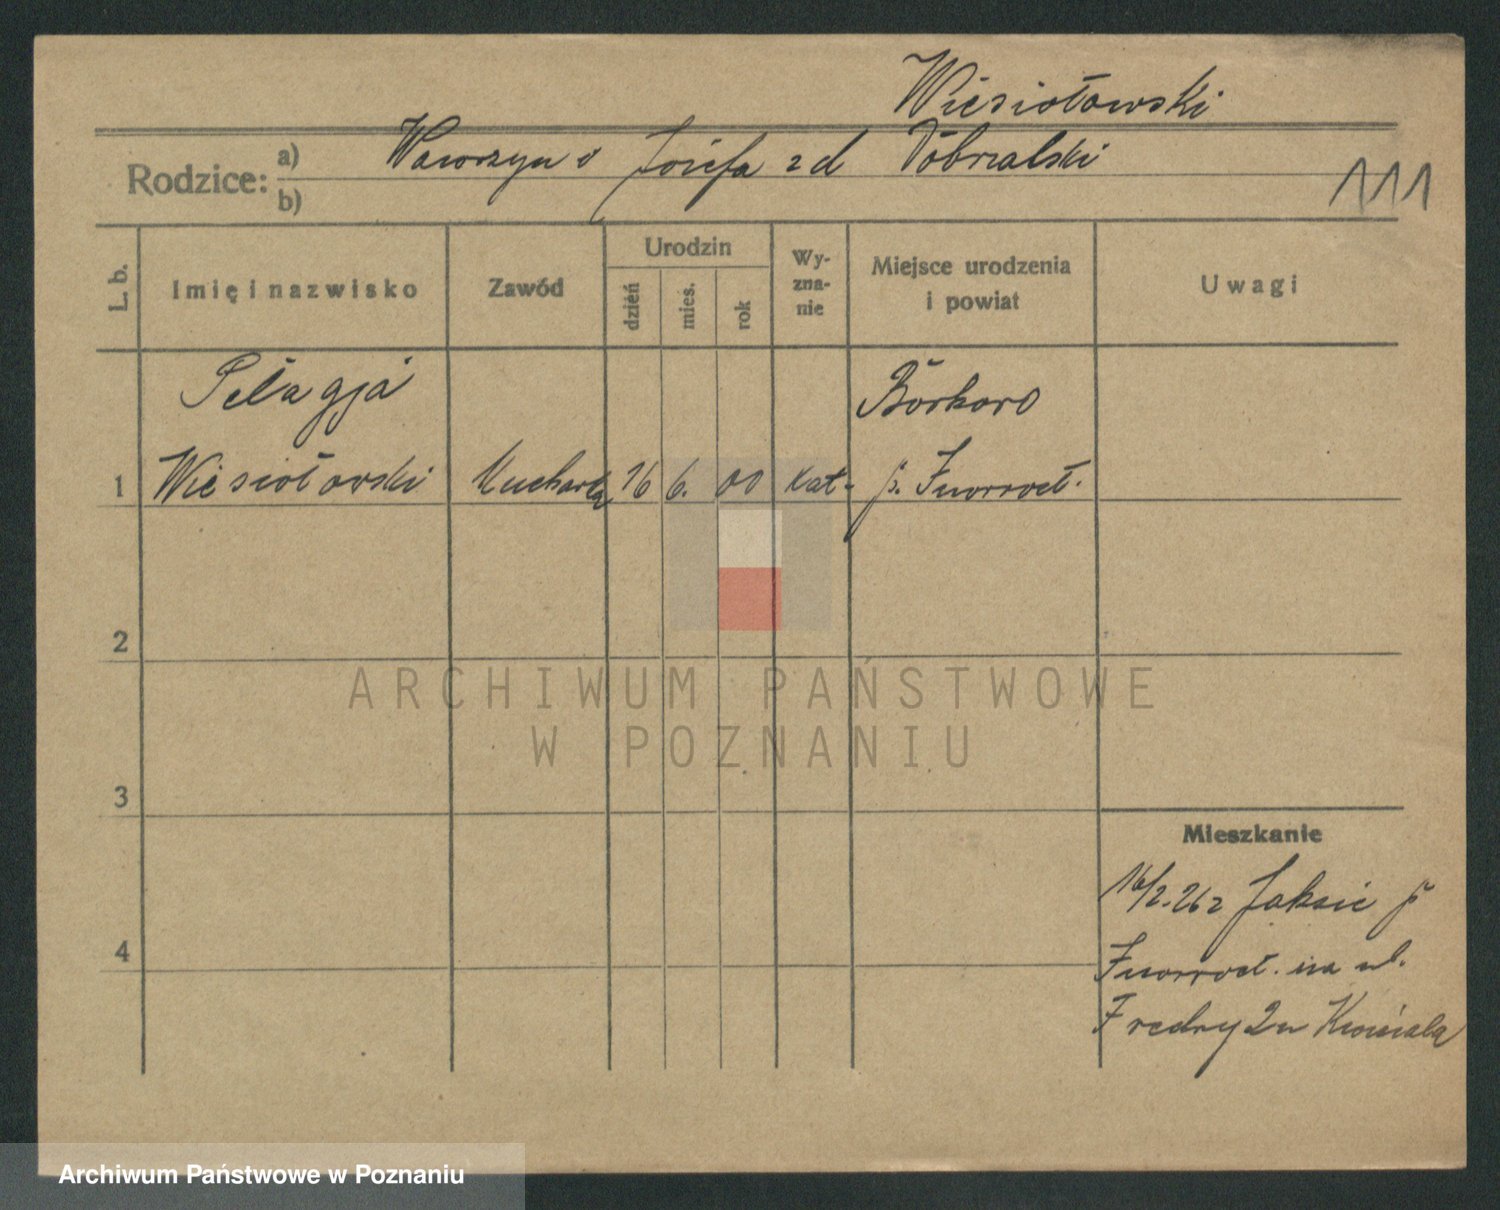 Wiesiołowski
Rodzice: a) Wawrzyn i Józefa z d Dobralski
b)
111
L. b.
Imię i nazwisko
Zawód
Urodzin
dzień
mies.
rok
Wy-
zna-
nie
Miejsce urodzenia
i powiat
Uwagi
Pelagja
Borkowo
1 Wiesiołowski Kucharka 16 6. 00 kat. p. Inowrocł.
2
ARCHIWUM PAŃSTWOWE
W POZNANIU
3
Mieszkanie
16/2.26 z Jaksic p
4
Inowrocł. na ul.
Fredry 2 u
Archiwum Państwowe w Poznaniu